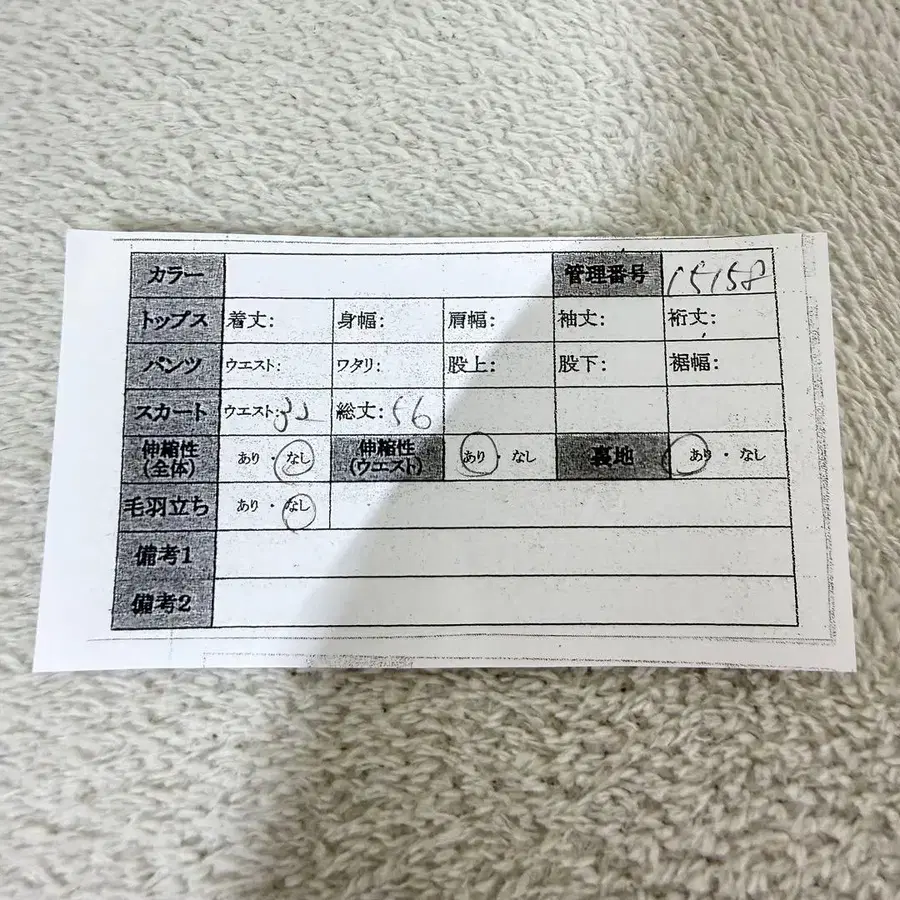 カラー 管理番号 15158
トップス 着丈: 身幅: 肩幅: 袖丈: 裄丈:
パンツ ウエスト: ワタリ: 股上: 股下: 裾幅:
スカート ウエスト:32 総丈:56
伸縮性(全体) あり・なし 伸縮性(ウエスト) あり・なし 裏地 あり・なし
毛羽立ち あり・なし
備考1
備考2